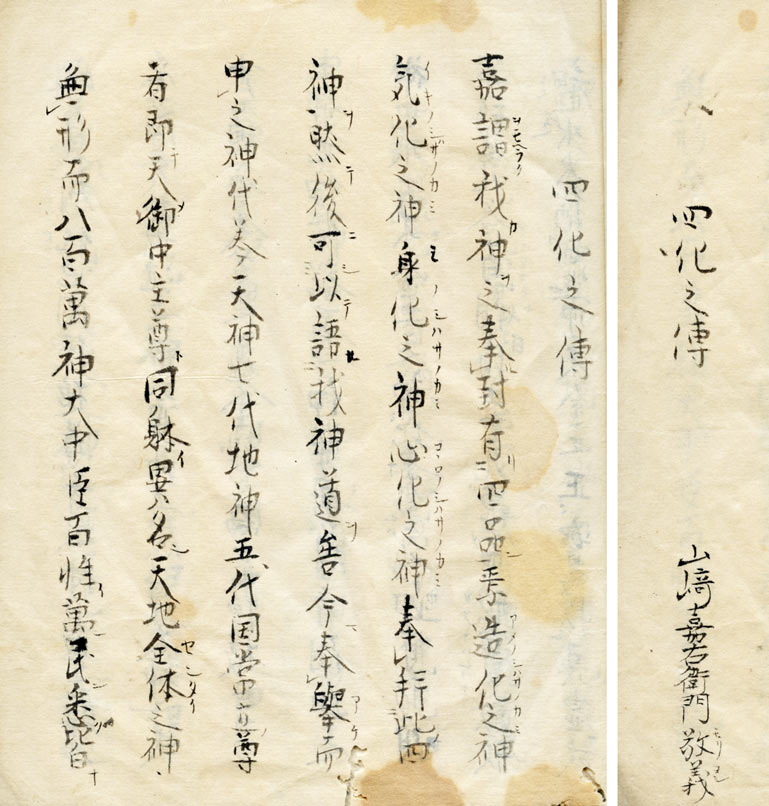 四化之傳
山﨑嘉右衛門敬義
四化之傳
嘉謂我神之奉對有四品焉造化之神
気化之神身化之神心化之神奉拜此四
神然後可以語我神道矣今奉擧而
申之神代巻天神七代地神五代国常立尊
者即天御中主尊同躰異名天地全体之神
無形而八百萬神大中臣百姓萬民悉皆